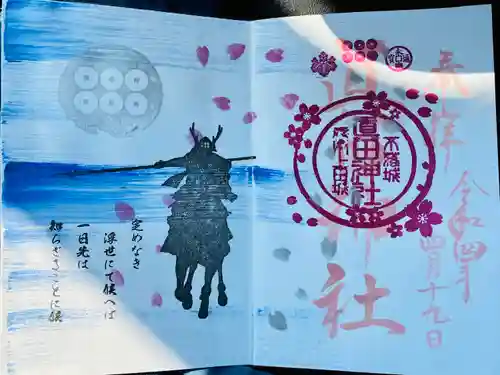 奉拝
眞田神社
令和四年
四月十九日
眞田神社
不落城
信濃上田城
定めなき
浮世にて候へば
一日先は
知らざることに候